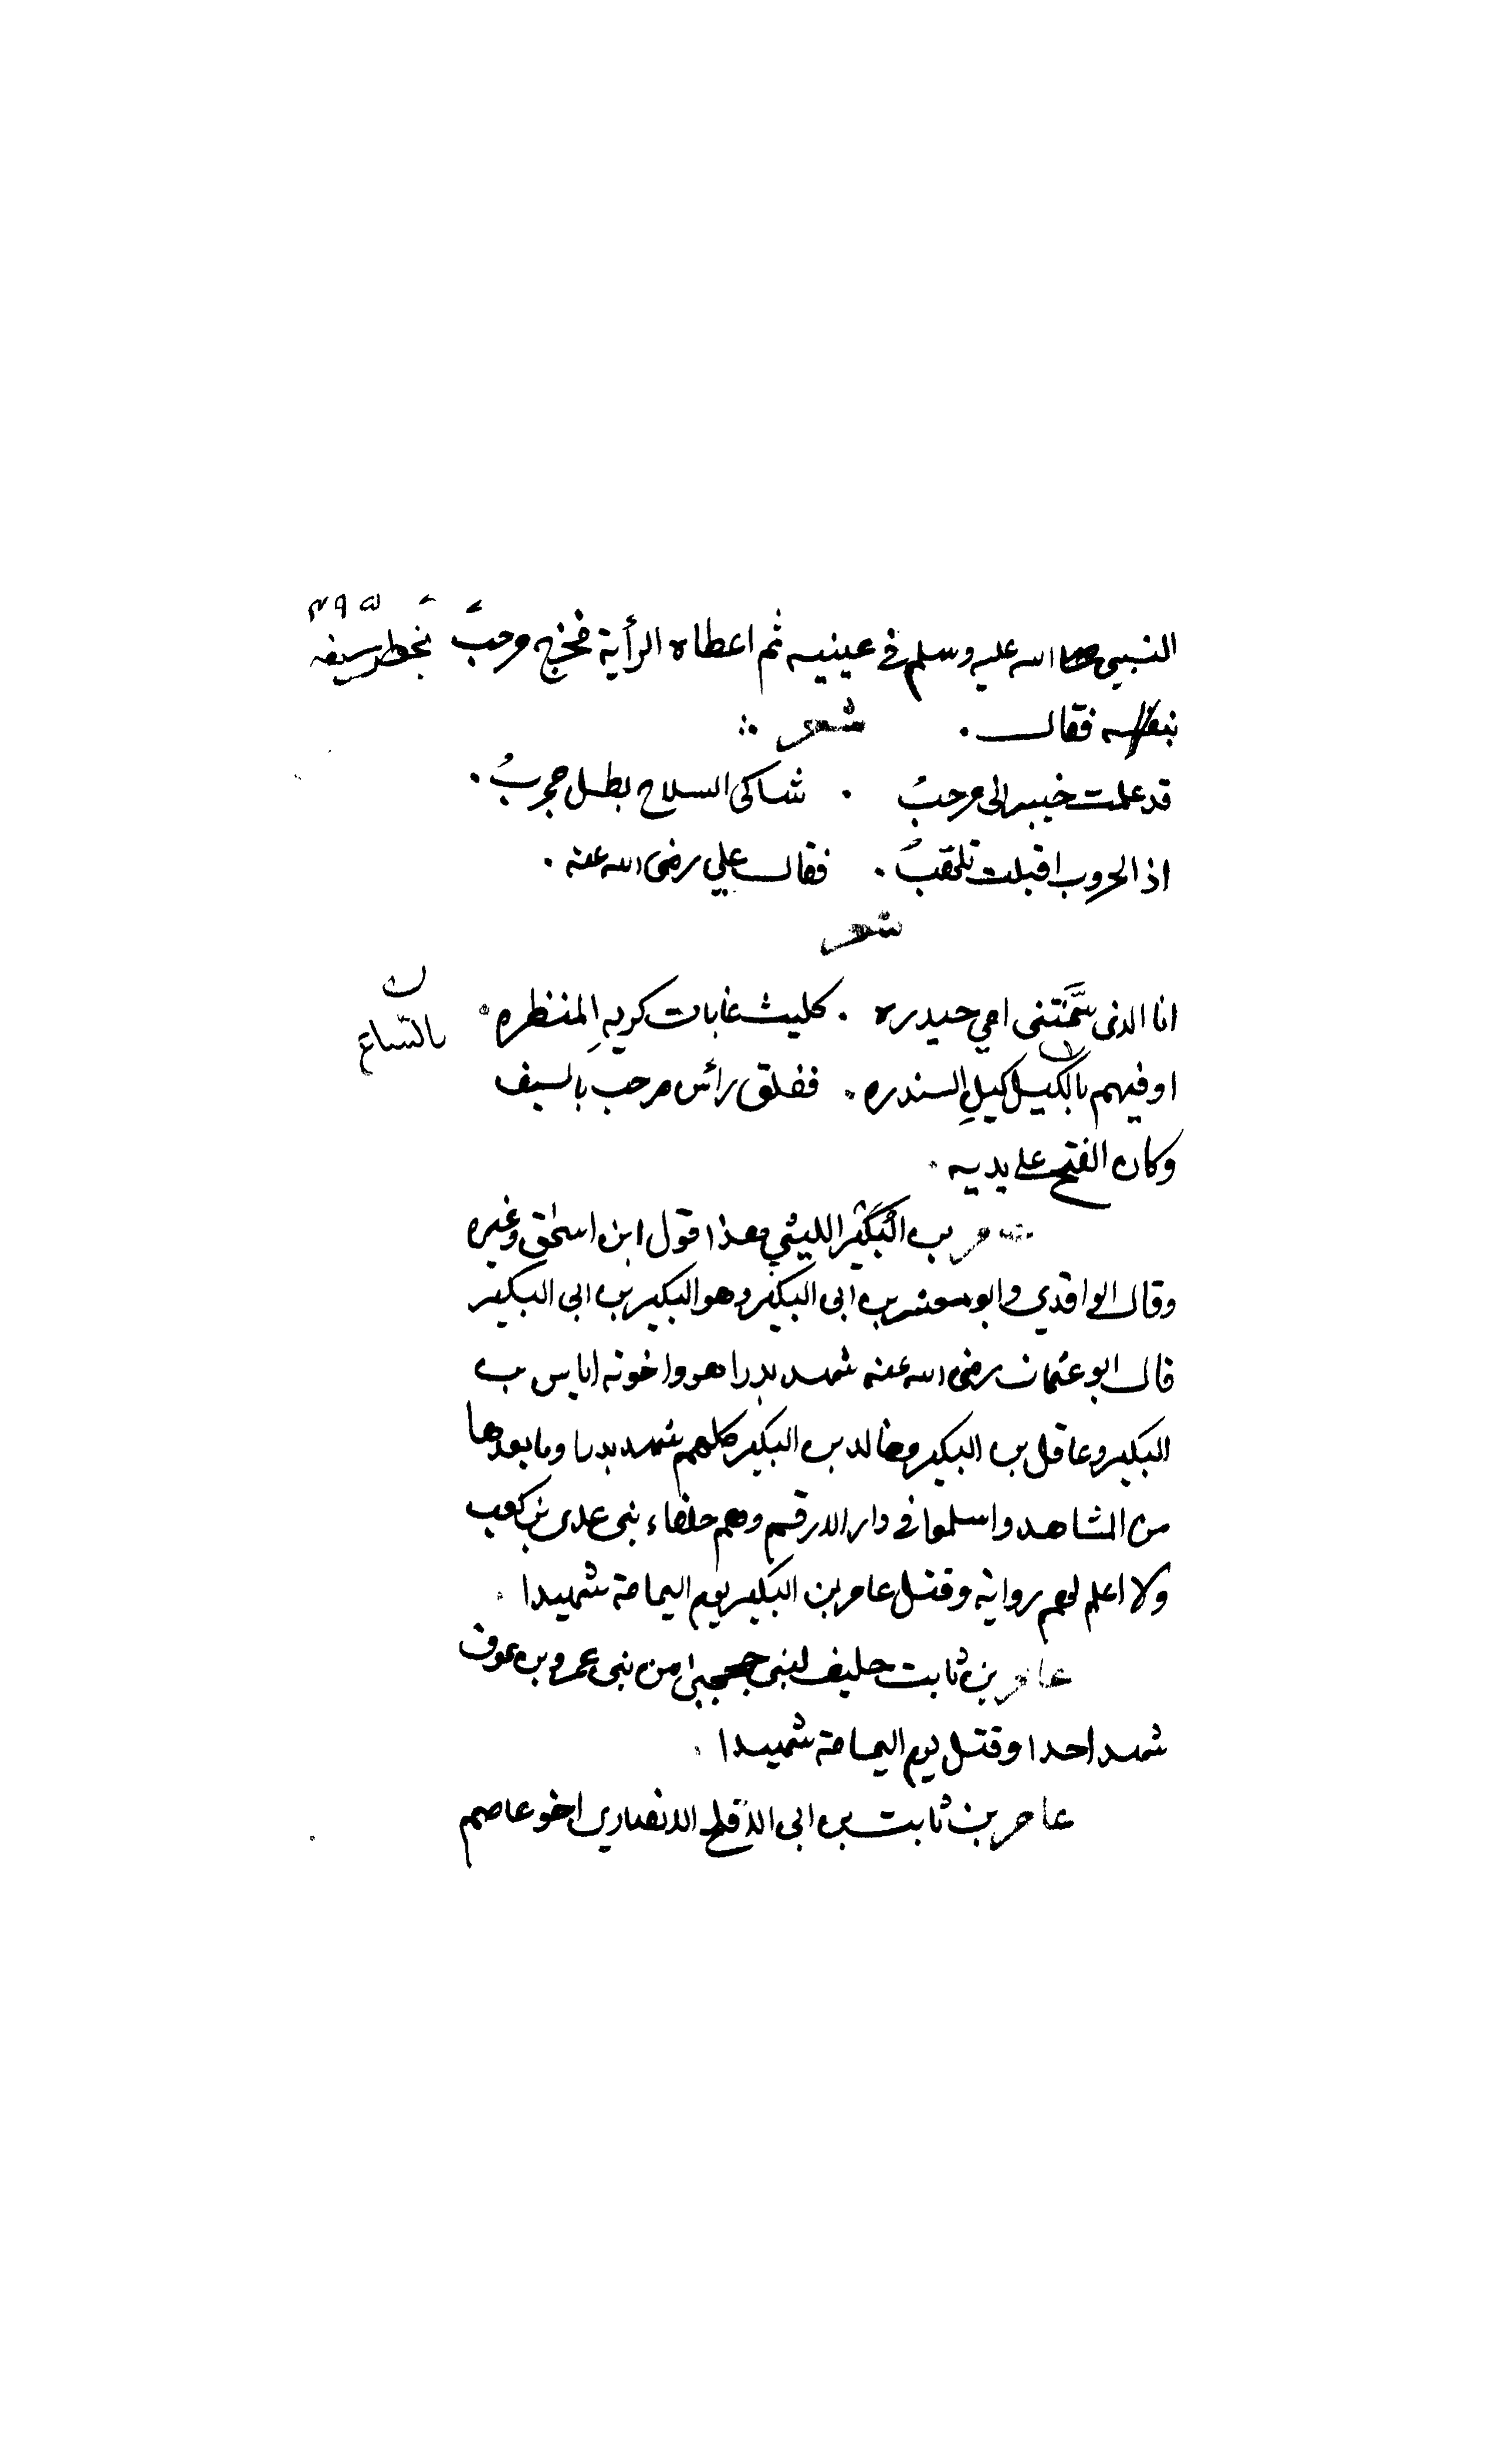 النبي صلى الله عليه وسلم في عينيه ثم اعطاه الرأية فخرج مرحبً يخطر بسيفه
فقال . شعر
قد علمت خيبر انى مرحبُ . شاكى السلاح بطل مجربُ .
اذا لحروب اقبلت تلهبُ . فقال علي رضى الله عنه .
شعر
انا الذى سَّمتنى امي حيدره . كليث غابات كريهِ المنظره .
اوفيهم بالكيل كيلِ السندره . ففلق رأس مرحب بالسيف
بالصّاع
وكان الفتح على يديه .
عامر بن البُكَيْر الليثي هذا قول ابن اسحٰق وغيره
وقال الواقدي وابو معشر بن ابى البكير وهو البكير بن ابى البكير
قال ابو عثمان رضى الله عنه شهد بدرا هو واخوته اياس بن
البكير وعاقل بن البكير وخالد بن البكير كلهم شهد بدرا وما بعدها
من المشاهد واسلموا فى دار الارقم وهم حلفاء بنى عدى بن كعب
ولا اعلم لهم رواية وقتل عامر بن البكير يوم اليمامة شهيدا .
عامر بن ثابت حليف لبنى جحجبى من بنى عمرو بن عوف
شهد احدا وقتل يوم اليمامة شهيدا .
عامر بن ثابت بن ابى الاقلح الانصاري اخو عاصم